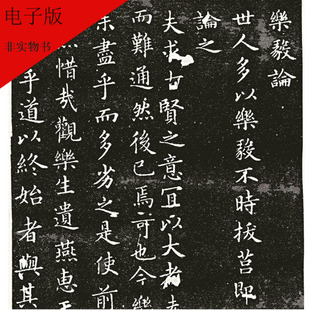 电子版
非实物书
樂毅論
世人多以樂毅不時拔莒即
論之
夫求古賢之意宜以大者
而難通然後已焉可也今樂
未盡乎而多劣之是使前
惜哉觀樂生遺燕惠王
乎道以終始者與其